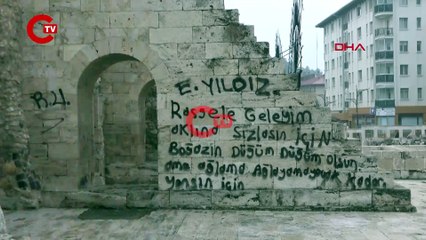 TV
DHA
E. YILDIZ
R.Y.
Rasgele Geleyim
aklına sızlasın için
Boğazın Düğüm Düğüm olsun
ama ağlama Ağlayamayacak kadar
yansın için